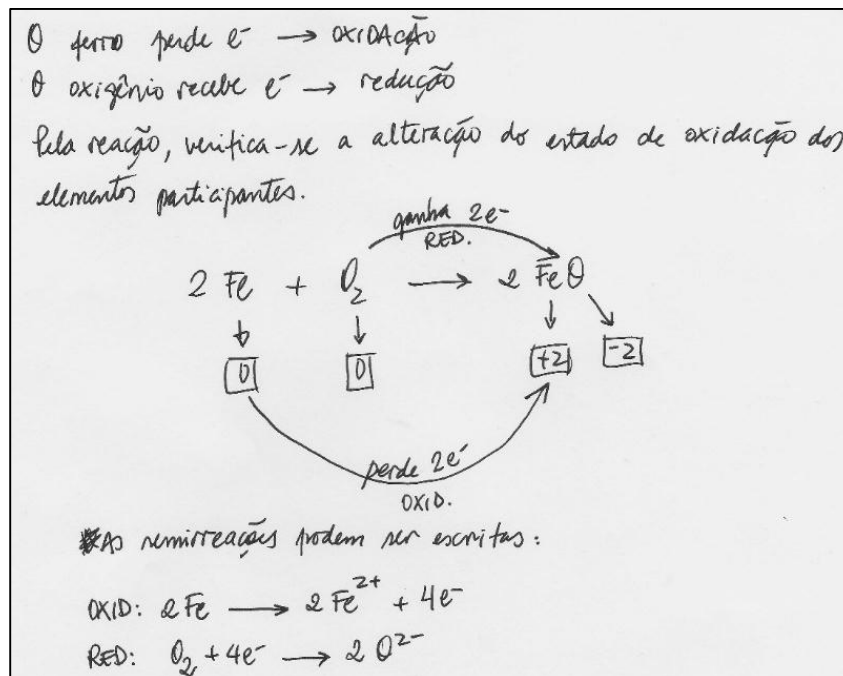 O ferro perde e⁻ → OXIDAÇÃO
O oxigênio recebe e⁻ → redução
Pela reação, verifica-se a alteração do estado de oxidação dos
elementos participantes.
ganha 2e⁻
RED.
2 Fe + O₂ → 2 FeO
0 0 +2 -2
perde 2e⁻
OXID.
*As semirreações podem ser escritas:
OXID: 2Fe → 2Fe²⁺ + 4e⁻
RED: O₂ + 4e⁻ → 2 O²⁻